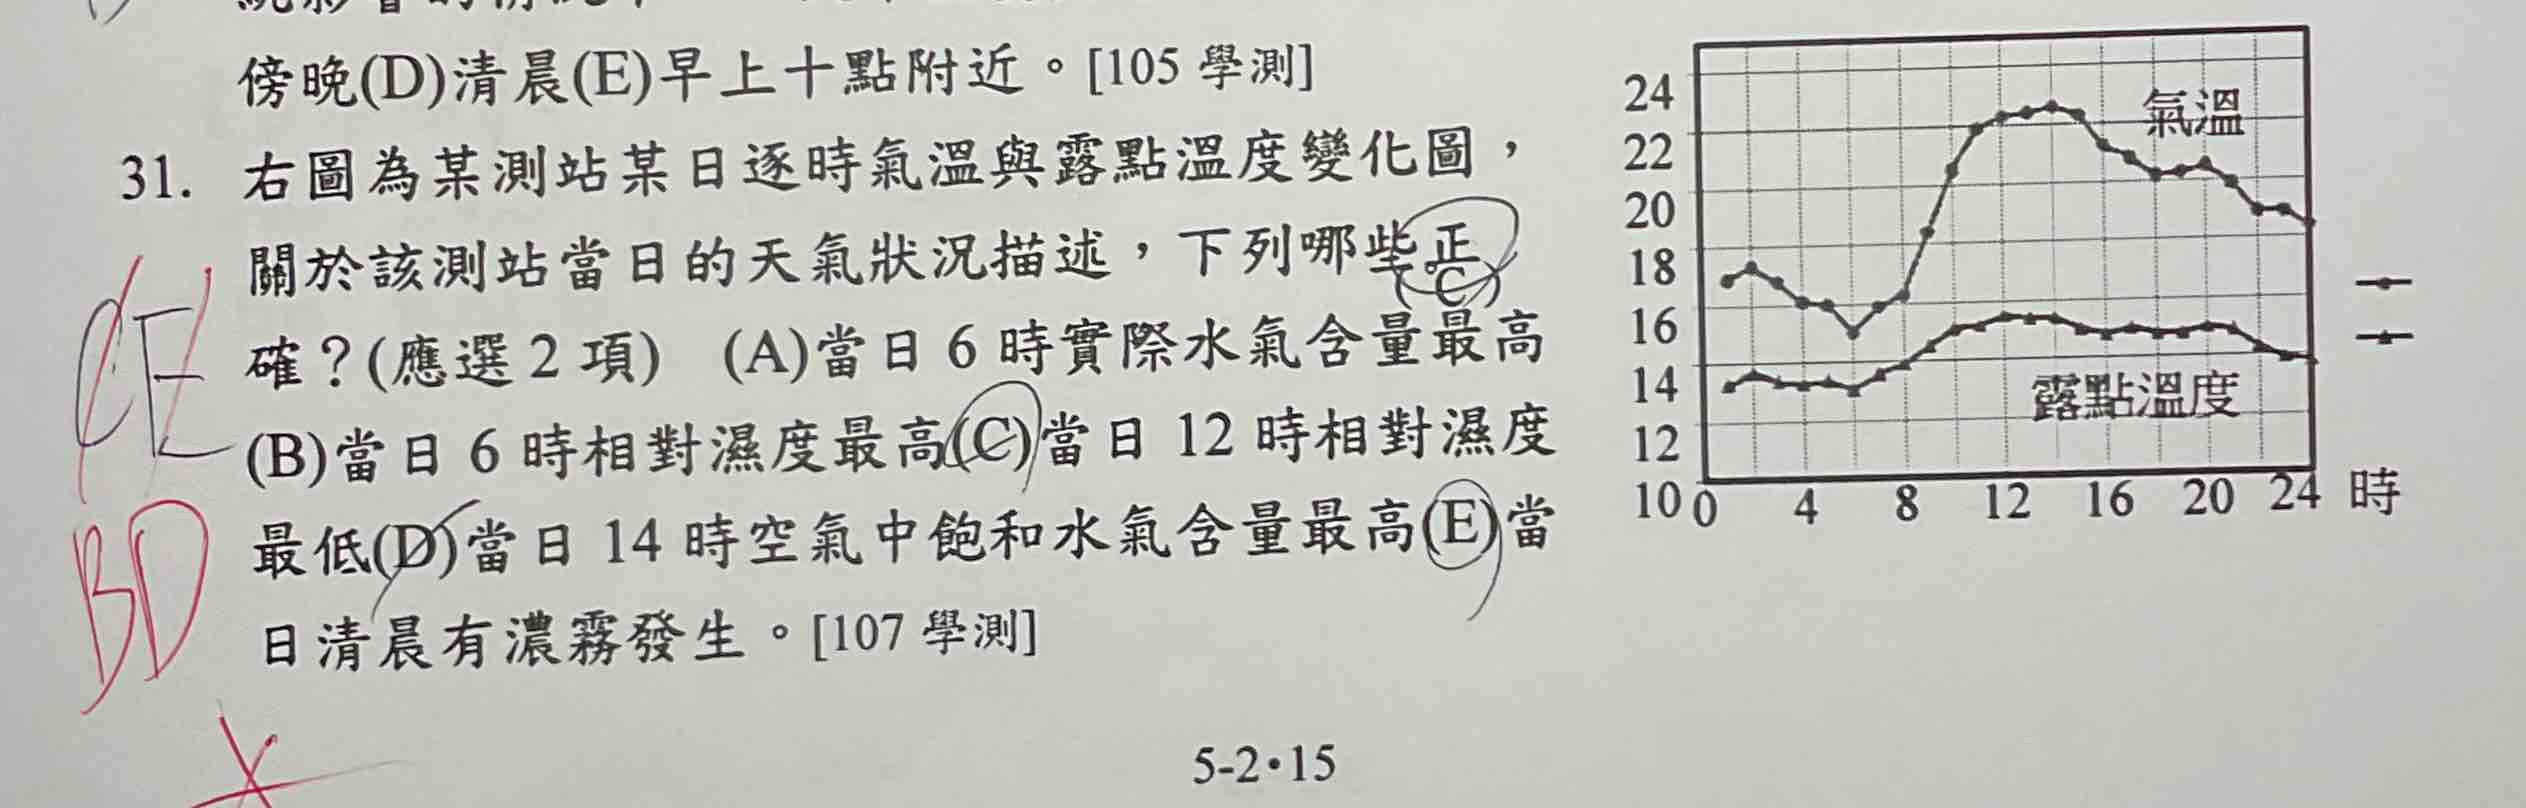 傍晚(D)清晨(E)早上十點附近。[105 學測]
31. 右圖為某測站某日逐時氣溫與露點溫度變化圖，
關於該測站當日的天氣狀況描述，下列哪些正
(℃)
確？(應選 2 項) (A)當日 6 時實際水氣含量最高
(B)當日 6 時相對濕度最高(C)當日 12 時相對濕度
最低(D)當日 14 時空氣中飽和水氣含量最高(E)當
日清晨有濃霧發生。[107 學測]
CE
BD
24
22
20
18
16
14
12
10
氣溫
露點溫度
0 4 8 12 16 20 24 時
5-2•15